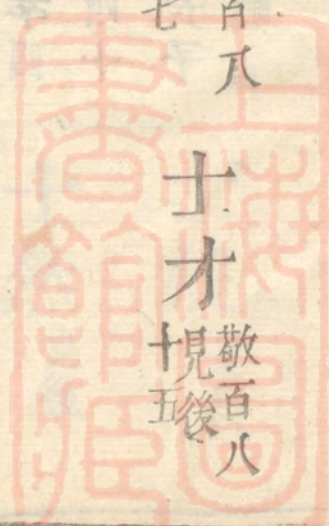 百八
七
士才
敬百八
見後
十五
上海圖
書館藏